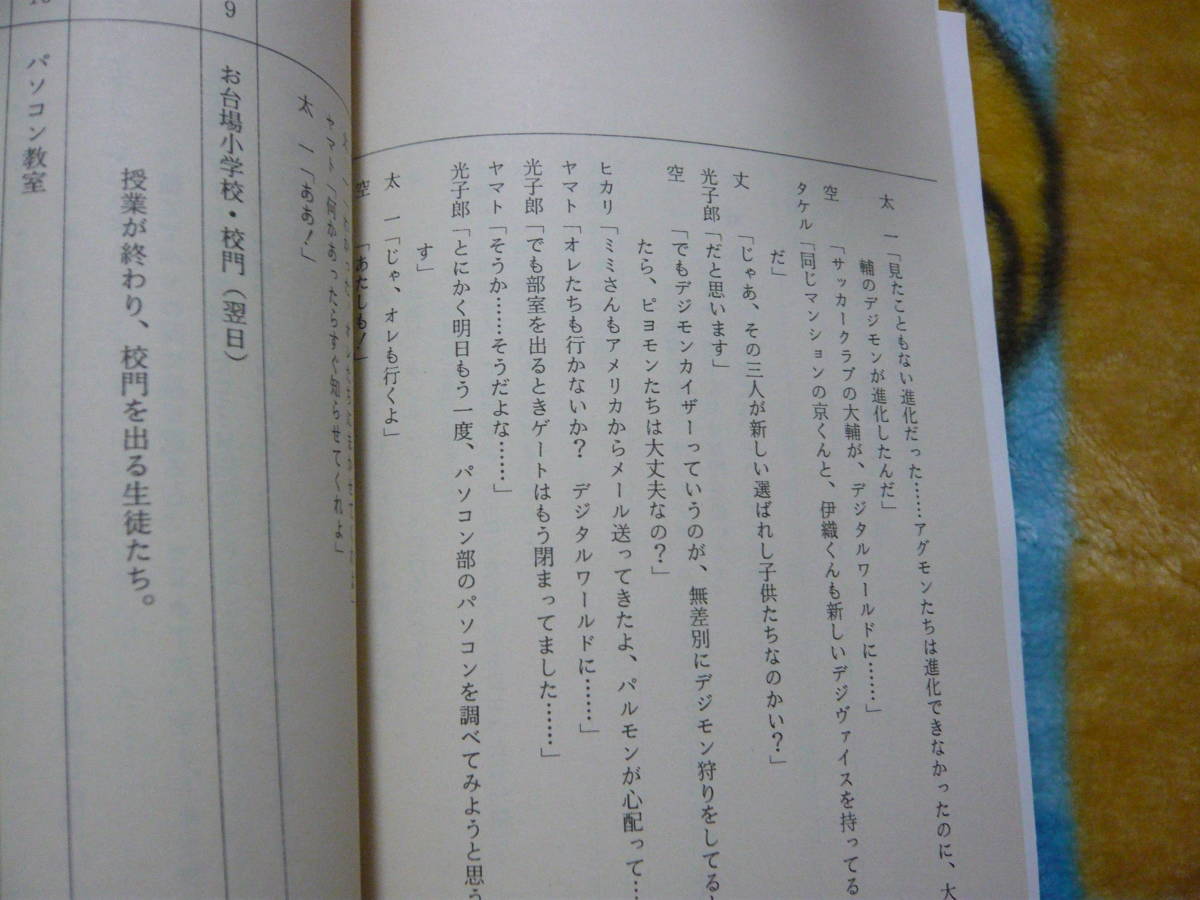 太一「見たこともない進化だった……アグモンたちは進化できなかったのに、大
輔のデジモンが進化したんだ」
空「サッカークラブの大輔が、デジタルワールドに……」
タケル「同じマンションの京くんと、伊織くんも新しいデジヴァイスを持ってる
だ」
丈「じゃあ、その三人が新しい選ばれし子供たちなのかい？」
光子郎「だと思います」
空「でもデジモンカイザーっていうのが、無差別にデジモン狩りをしてる
たら、ピヨモンたちは大丈夫なの？」
ヒカリ「ミミさんもアメリカからメール送ってきたよ、パルモンが心配って…
ヤマト「オレたちも行かないか？　デジタルワールドに……」
光子郎「でも部室を出るときゲートはもう閉まってました……」
ヤマト「そうか……そうだよな……」
光子郎「とにかく明日もう一度、パソコン部のパソコンを調べてみようと思う
す」
太一「じゃ、オレも行くよ」
空「あたしも！」
ヤマト「何かあったらすぐ知らせてくれよ」
太一「ああ！」
9 お台場小学校・校門（翌日）
授業が終わり、校門を出る生徒たち。
パソコン教室